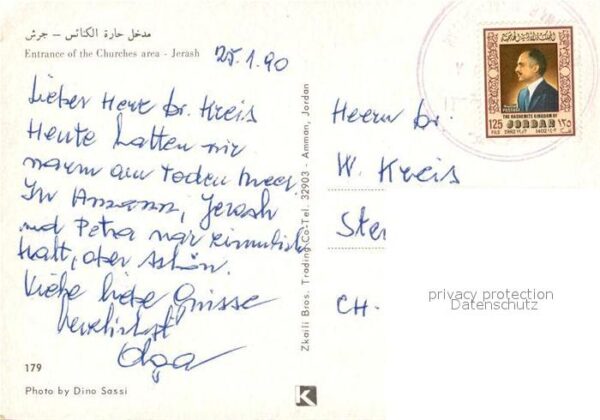 مدخل حارة الكنائس – جرش
Entrance of the Churches area - Jerash
25.1.90
Lieber Herr Dr. Kreis
Heute hatten wir
warm am Toden Meer.
In Amman, Jerash
und Petra war ziemlich
kalt, aber schön.
Viele liebe Grüsse
herzlichst
Olga
179
Photo by Dino Sassi
Zkaili Bros. Trading Co-Tel. 32903 - Amman, Jordan
K
المملكة الأردنية الهاشمية
POSTAGE
THE HASHEMITE KINGDOM OF
125 JORDAN ١٢٥
FILS
Herrn Dr.
W. Kreis
Ster
CH-
privacy protection
Datenschutz